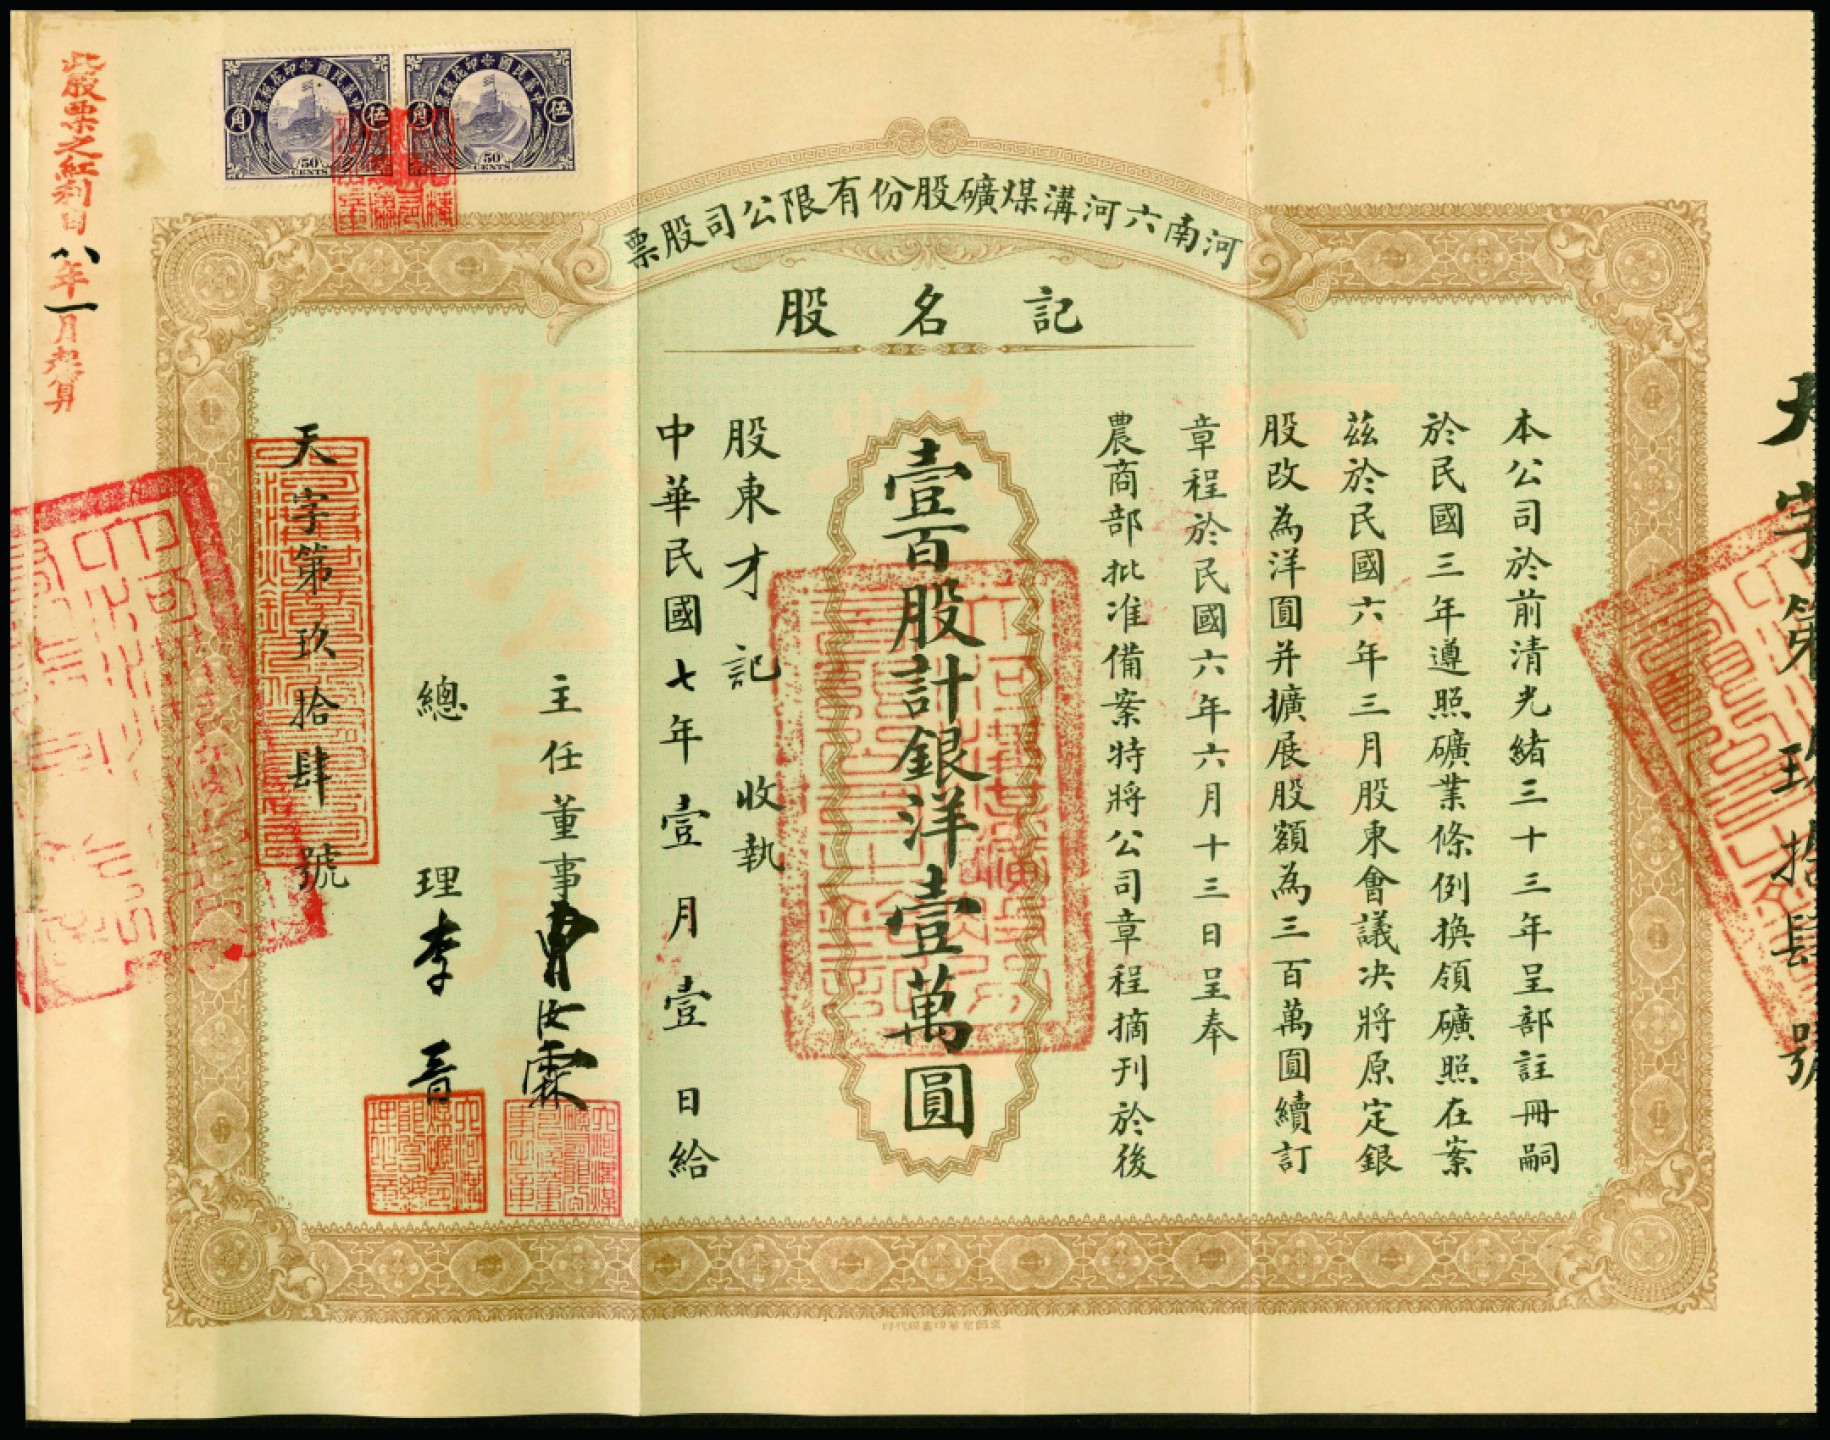 河南六河溝煤礦股份有限公司股票
記名股
本公司於前清光緒三十三年呈部註冊嗣
於民國三年遵照礦業條例換領礦照在案
茲於民國六年三月股東會議决將原定銀
股改為洋圓并擴展股額為三百萬圓續訂
章程於民國六年六月十三日呈奉
農商部批准備案特將公司章程摘刊於後
壹百股計銀洋壹萬圓
股東才記收執
中華民國七年壹月壹日給
主任董事曹汝霖
總理李晋
天字第玖拾肆號
此股票之紅利自八年一月起算
中華民國印花稅票
伍角
50
CENTS
中華民國印花稅票
伍角
50
CENTS
天字第玖拾肆號